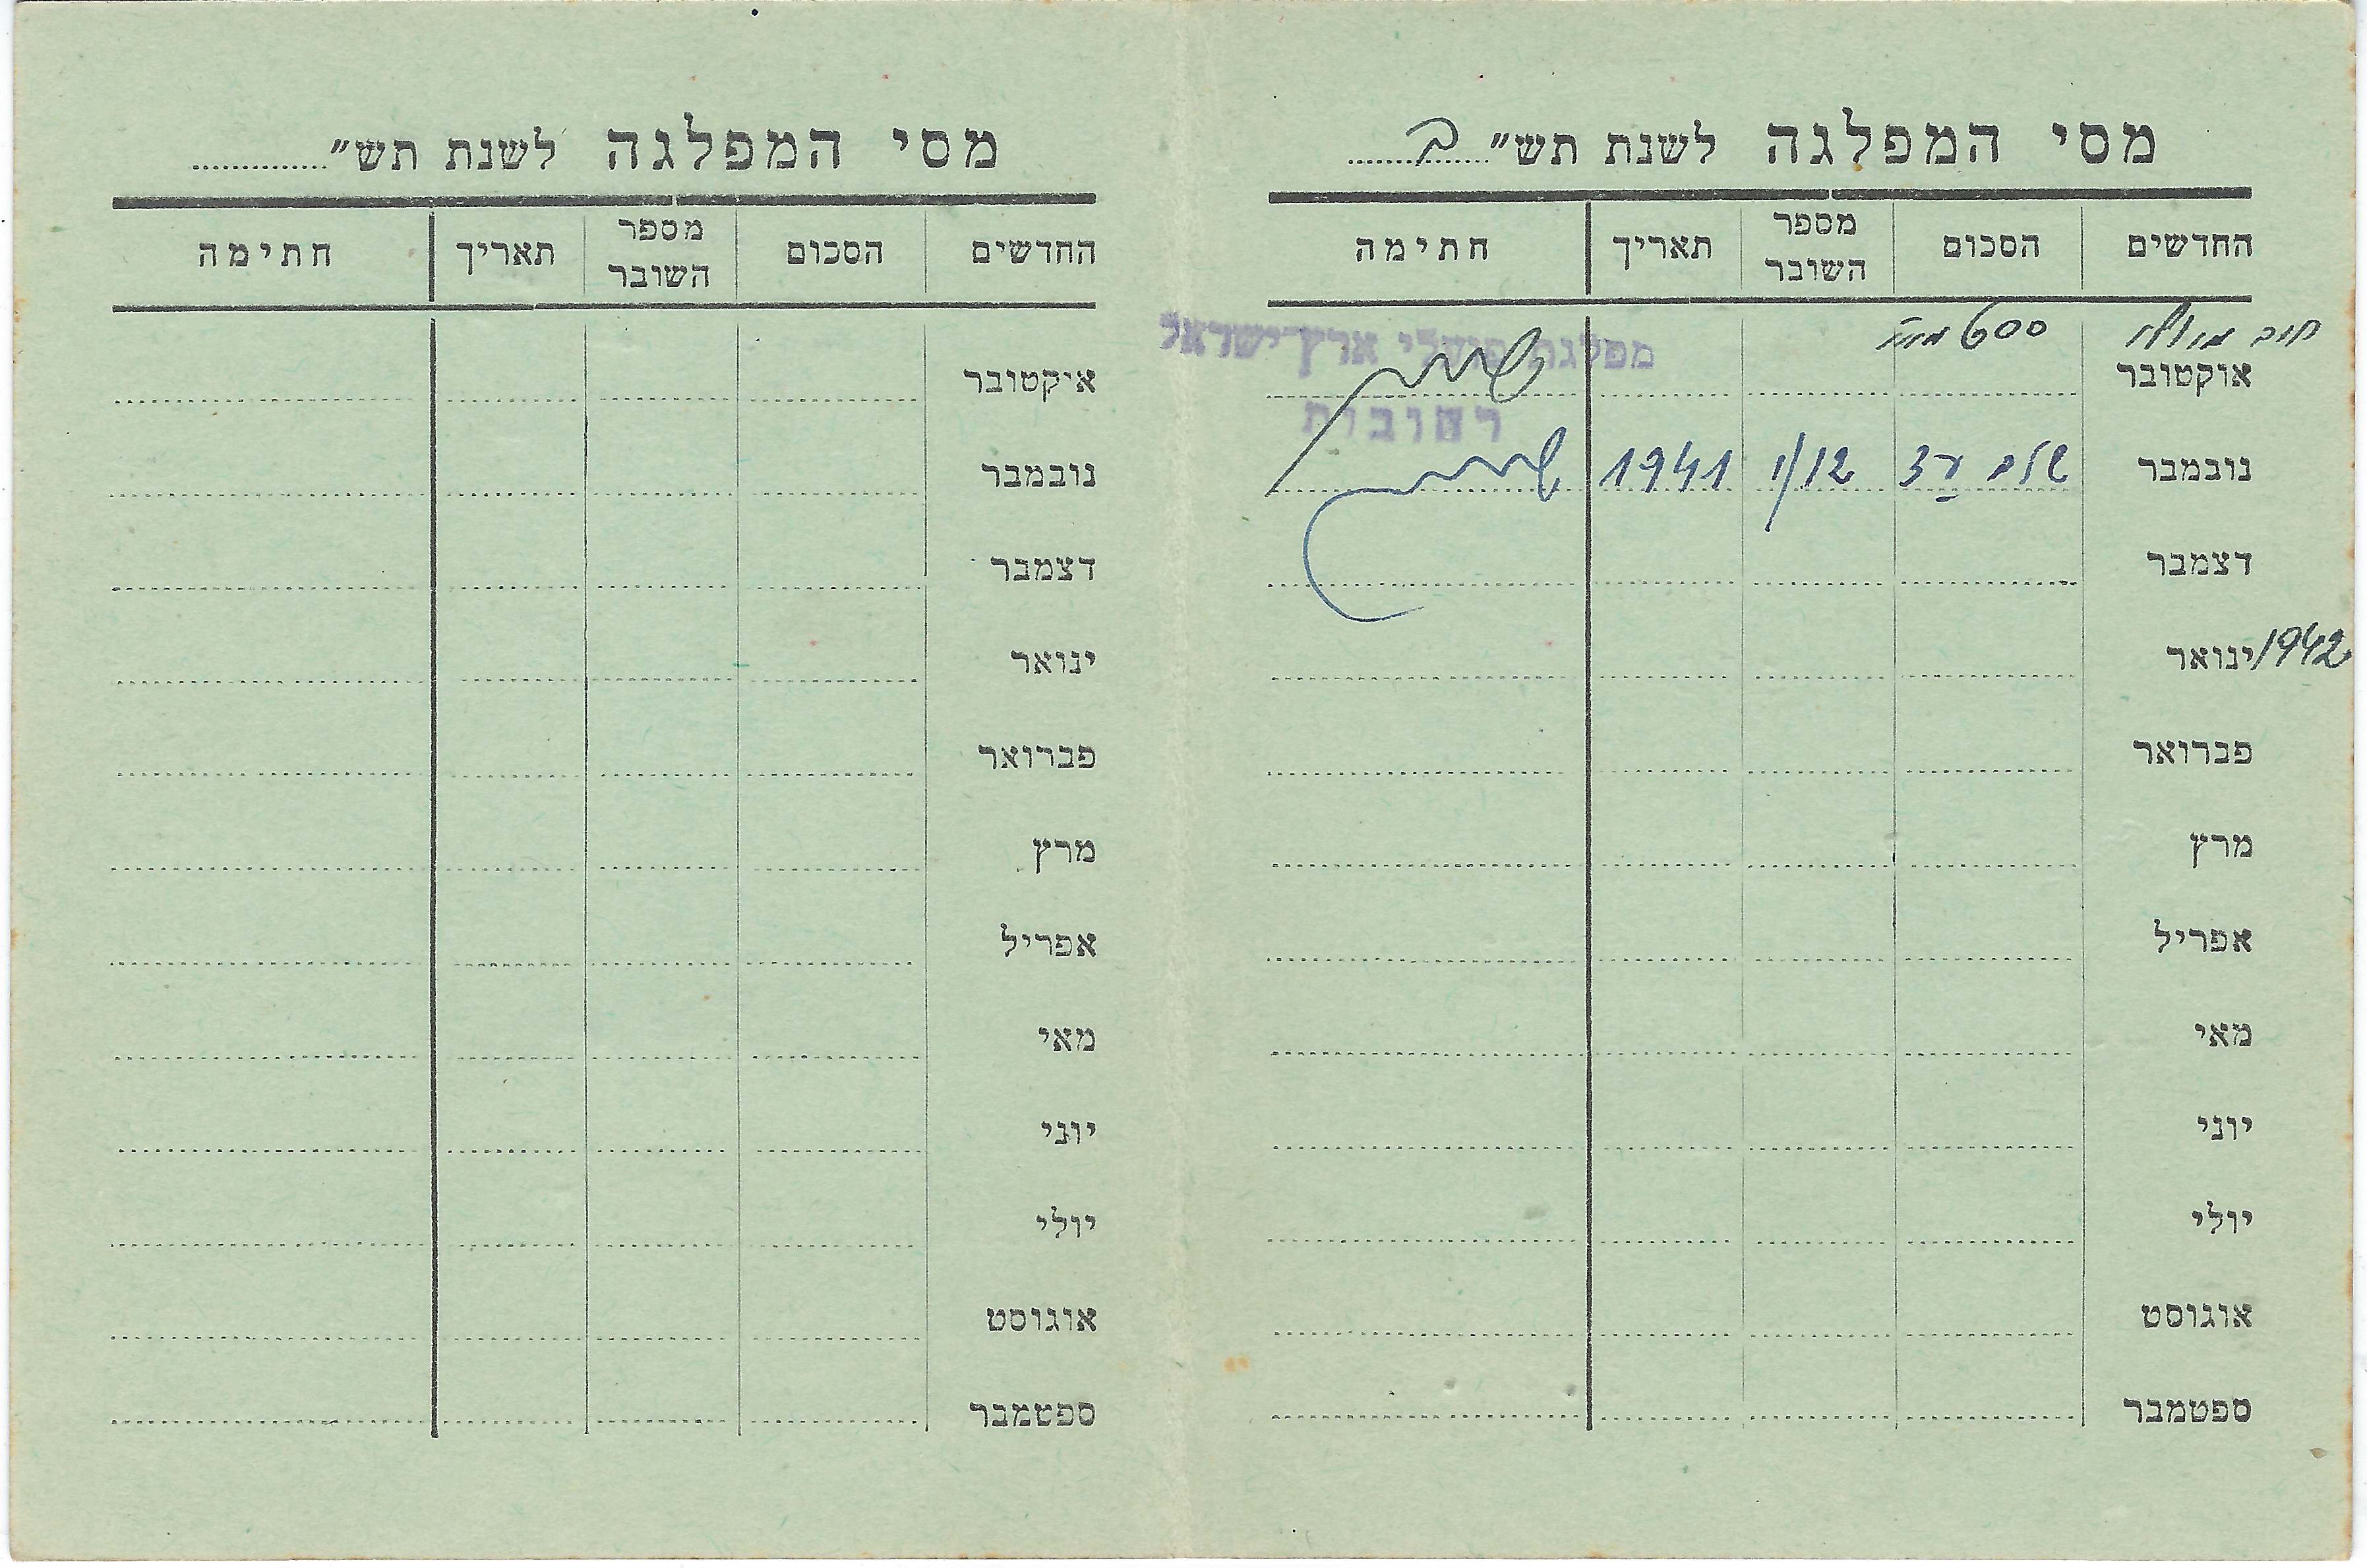 מסי המפלגה לשנת תש״ ב
החדשים הסכום מספר השובר תאריך חתימה
חוב 600
מפלגת פועלי ארץ־ישראל
אוקטובר
רחובות
נובמבר שולם עד 1/12 1941
דצמבר
ינואר 1942
פברואר
מרץ
אפריל
מאי
יוני
יולי
אוגוסט
ספטמבר
מסי המפלגה לשנת תש״
החדשים הסכום מספר השובר תאריך חתימה
איקטובר
נובמבר
דצמבר
ינואר
פברואר
מרץ
אפריל
מאי
יוני
יולי
אוגוסט
ספטמבר